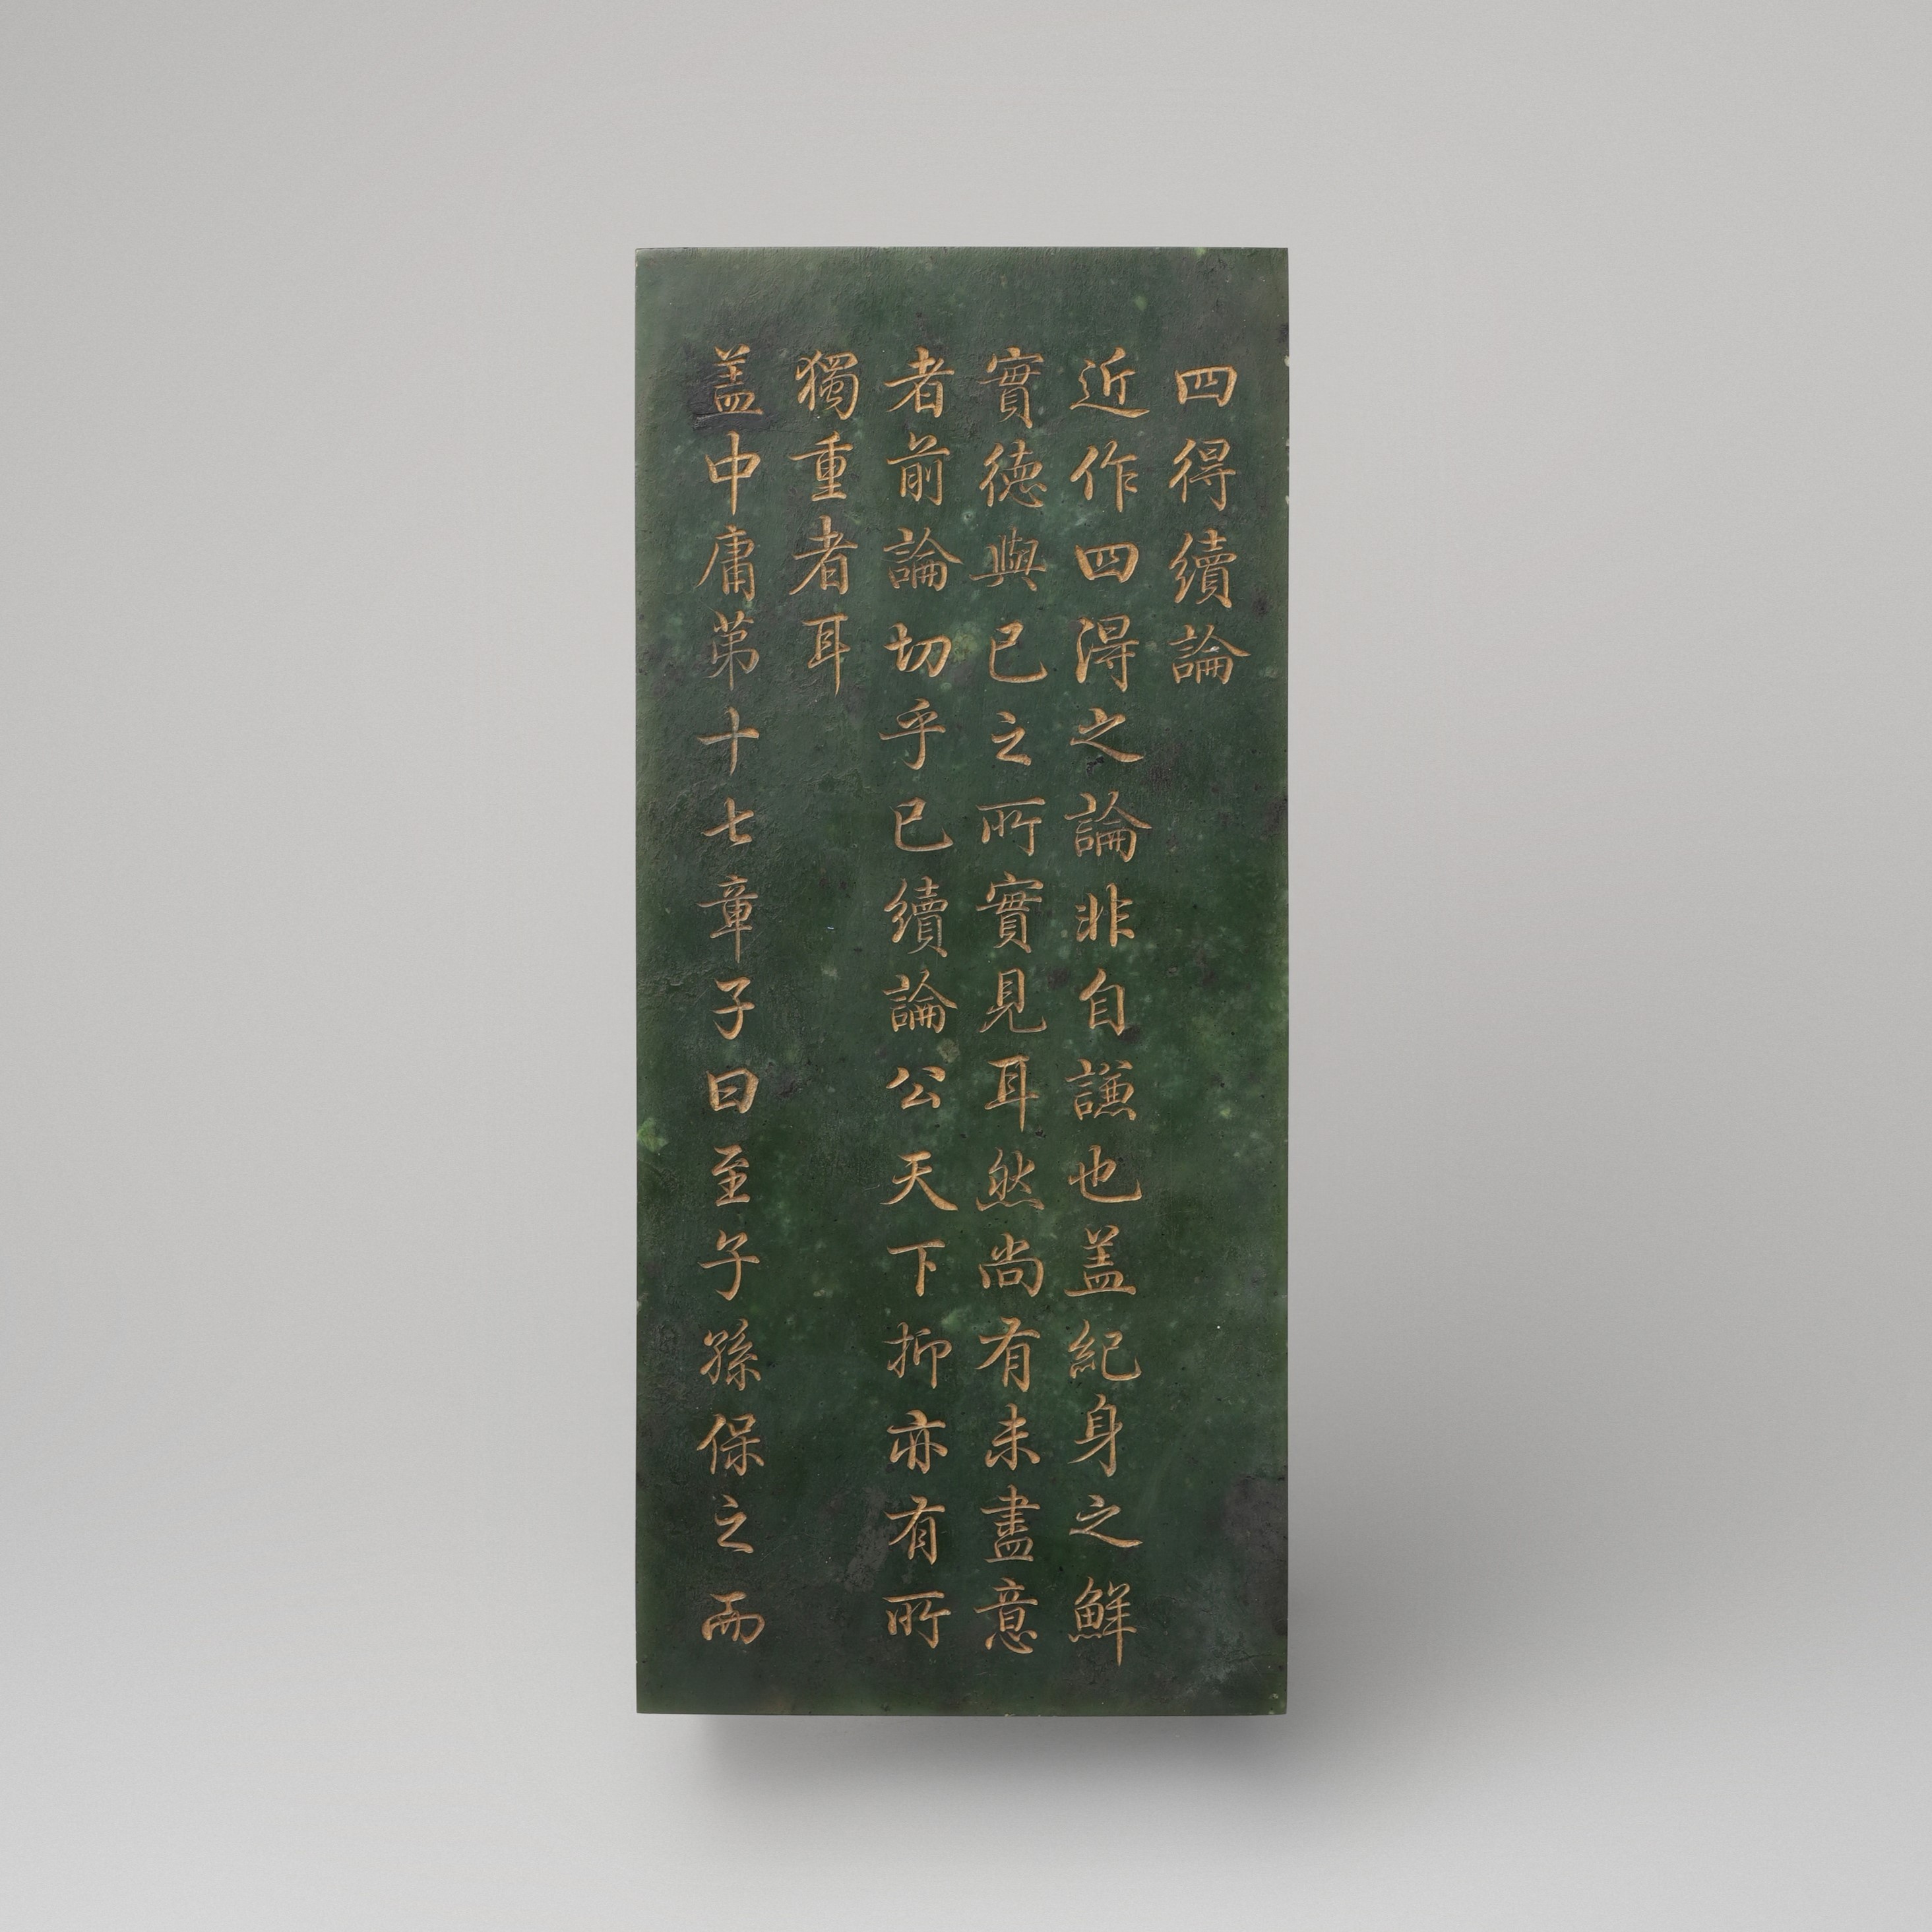 四得續論
近作四得之論非自謙也盖紀身之鮮
實德與已之所實見耳然尚有未盡意
者前論切乎已續論公天下抑亦有所
獨重者耳
盖中庸苐十七章子曰至子孫保之而